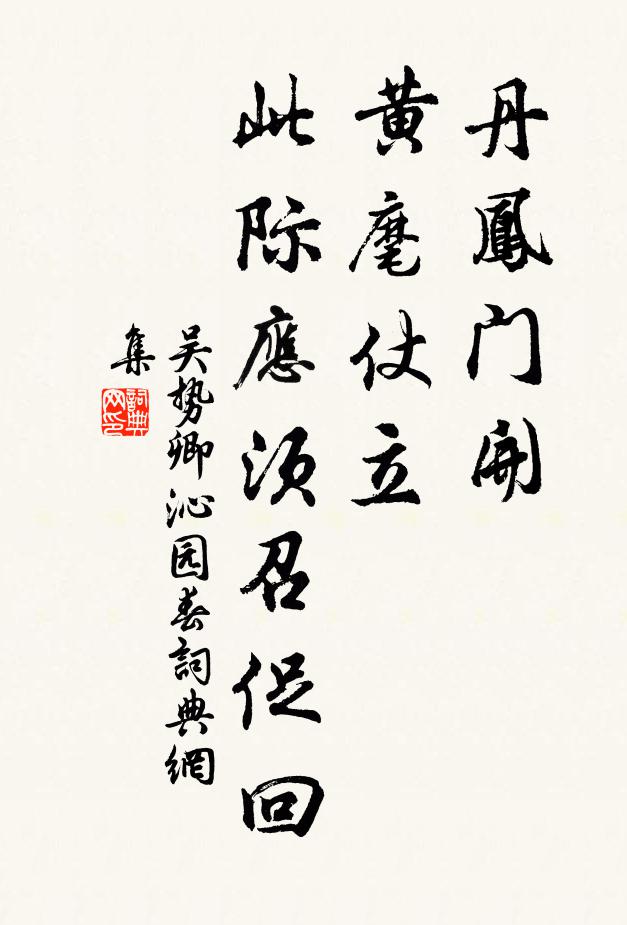 丹鳳门開
黃麾仗立
此际應须召促回
吴势卿沁园春詞典網
集
詞典
网印